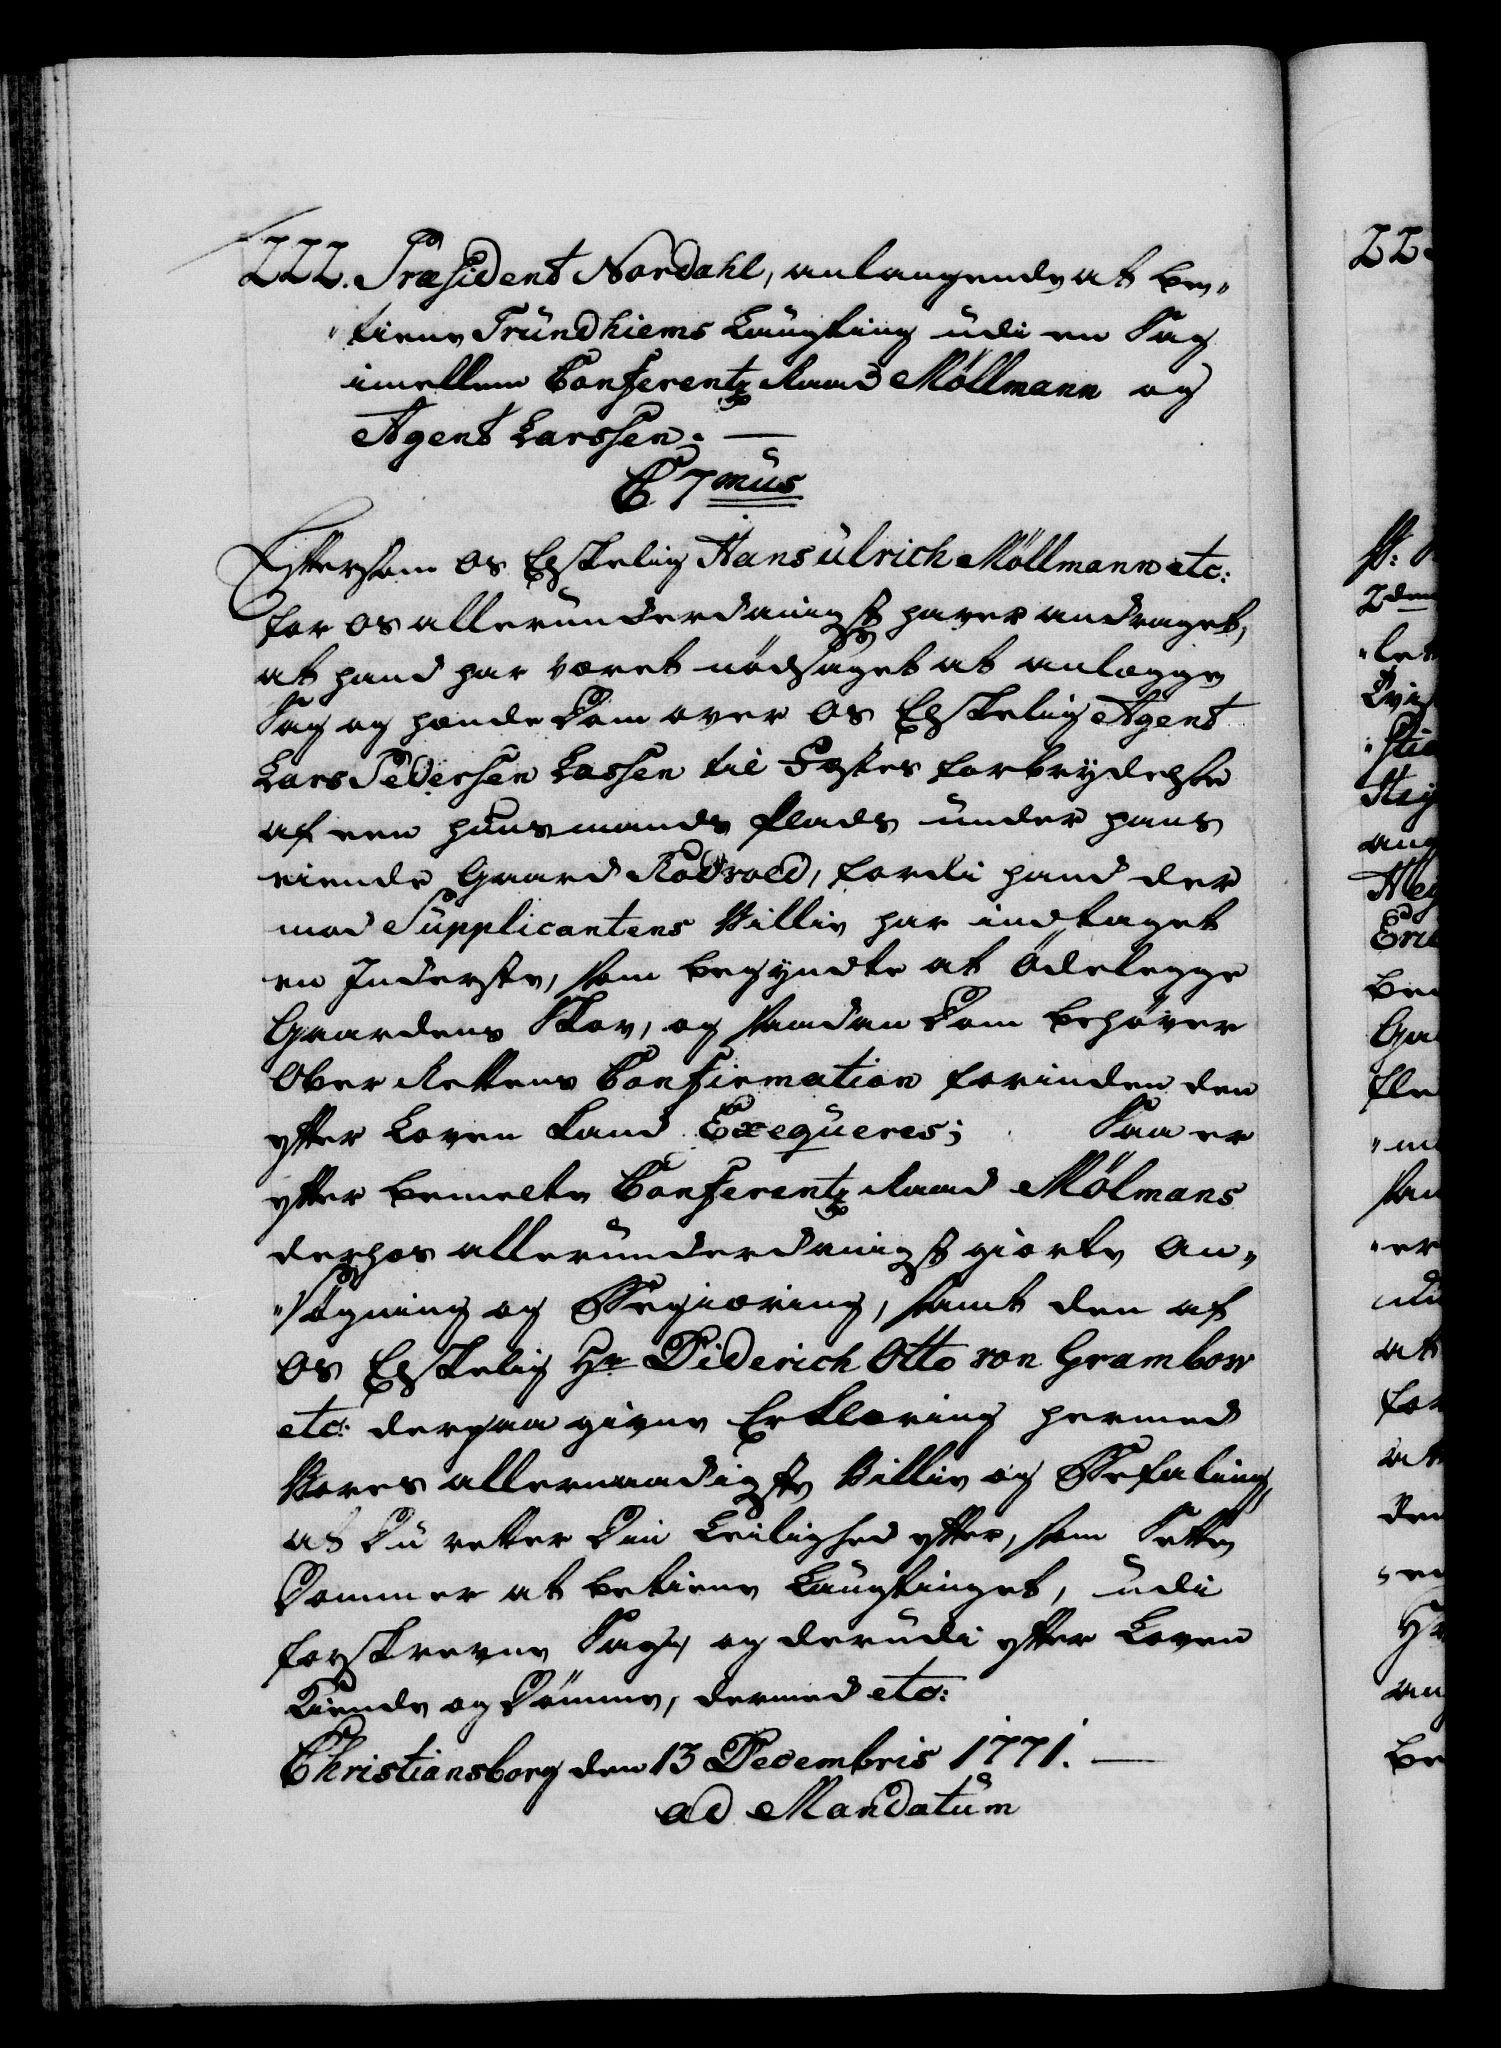 222. Præsident Nordahl, anlangende at be„
„tiene Trundhiems Laugting udi en Sag
imellem Conferentz Raad Möllmann og
Agent Larssen. —
C 7mus
Eftersom os Elskelig Hans Ulrich Möllmann etc:
for os allerunderdanigst haver andraget,
at hand har været nødsaget at anlægge
Sag og hænde Dom over os Elskelig Agent
Lars Pedersen Lassen til Festes forbrydelse
af een Huusmands Plads under hans
eiende Gaard Rodvold, fordi hand der
mod Supplicantens Villie har indtaget
en Inderste, som begyndte at ødelegge
Gaardens Skov, og saadan Dom behøver
Over Rettens Confirmation forinden den
efter Loven kand Exequeres; Saa er
efter bemelte Conferentz Raad Mölmans
derhos allerunderdanigst giorte An„
„søgning og Begiæring, samt den af
os Elskelig Hr Diderich Otto von Grambow
etc: derpaa givne Erklæring hermed
Vores allernaadigste Villie og Befaling,
at Du retter Din Leilighed efter, som Sette
Dommer at betiene Laugtinget, udi
forskrevne Sag, og derudi efter Loven
Kiende og Dømme, dermed etc:
Christiansborg den 13 Decembris 1771. —
ad Mandatum